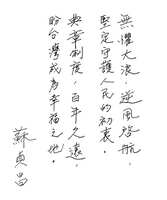 無懼大浪,逆風啟航,
堅定守護人民的初衷。
典章制度,百年久遠。
盼台灣成為幸福之地。
蘇貞昌